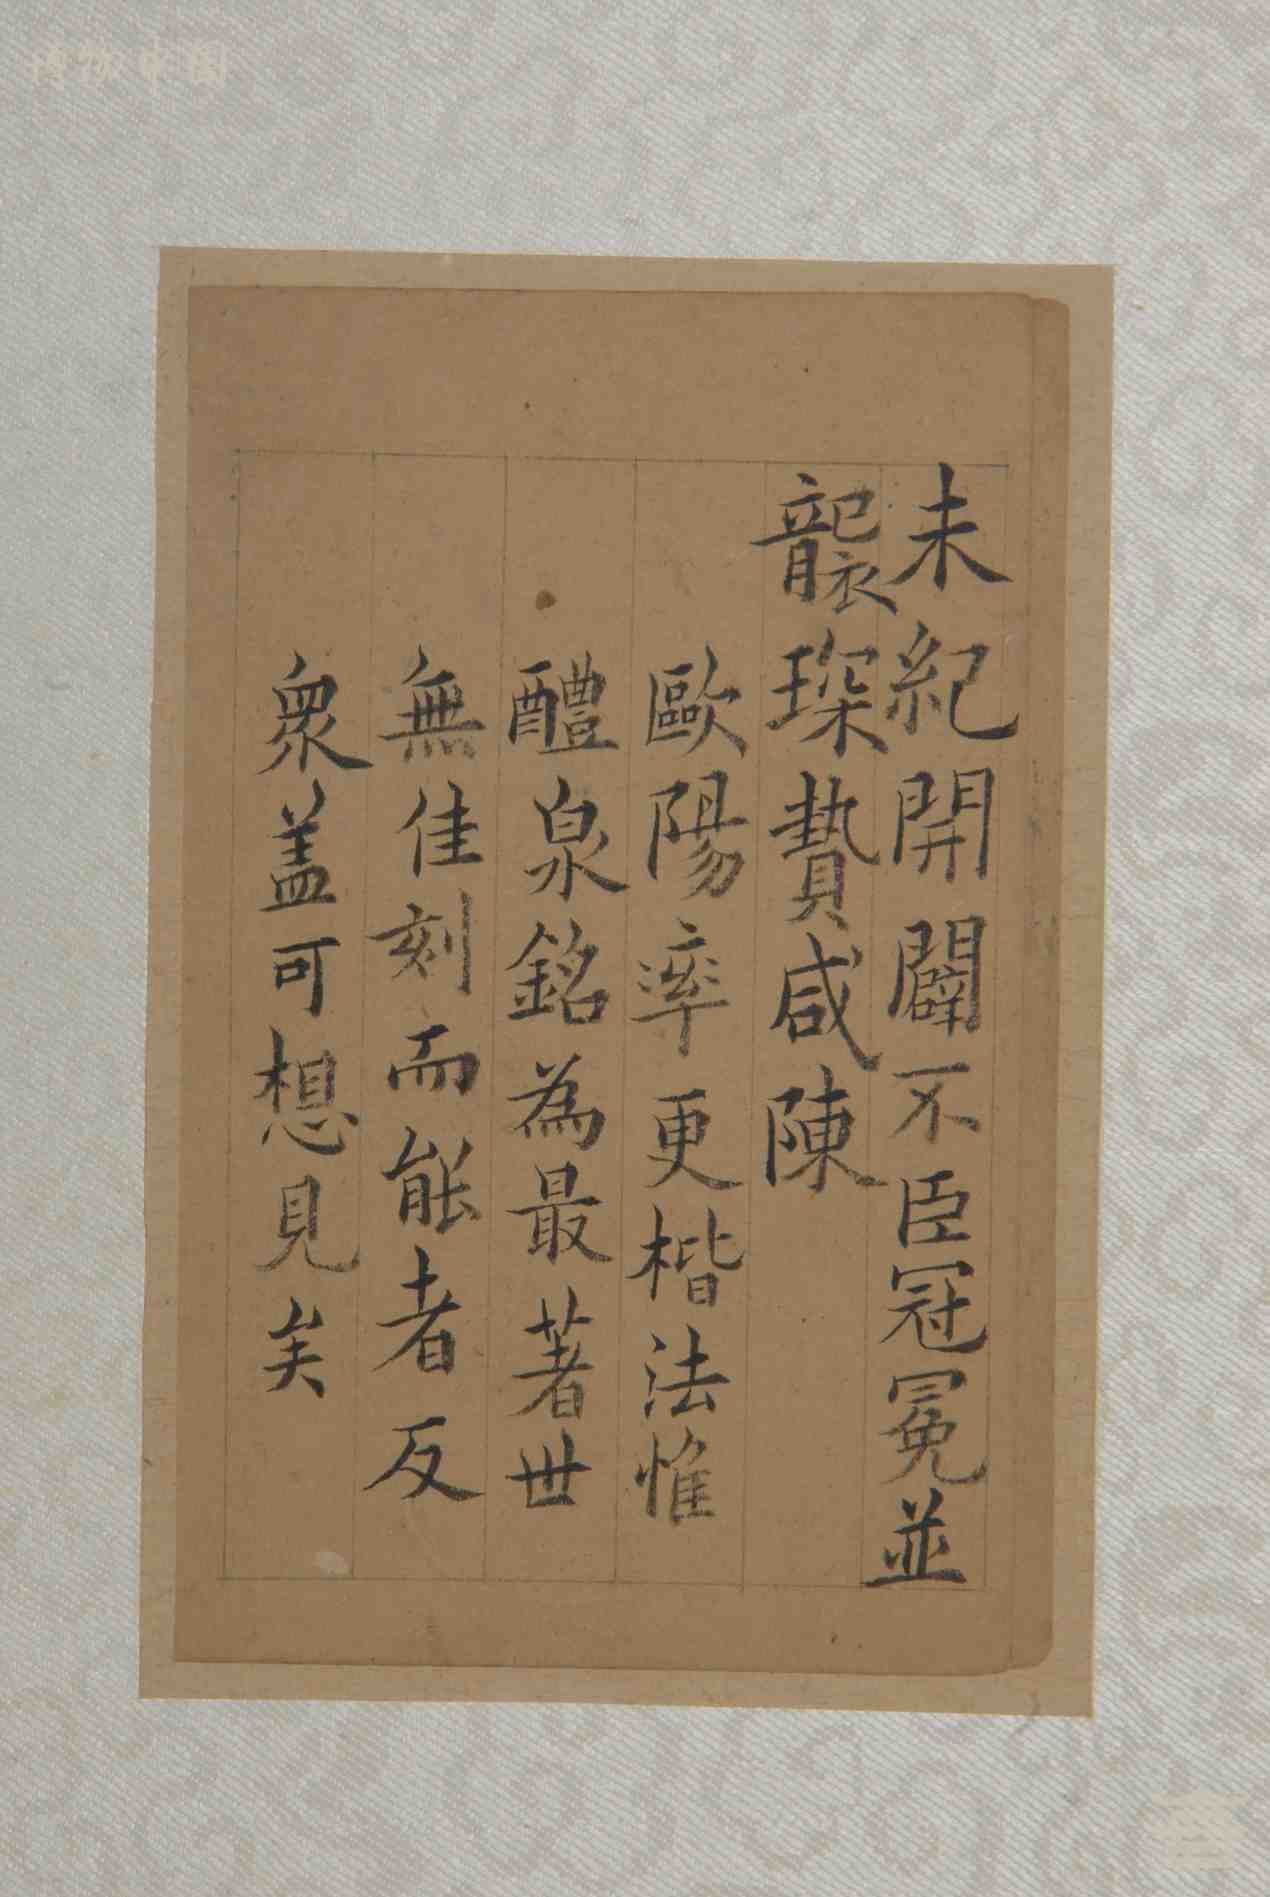 未紀開闢不臣冠冕並
襲琛贄咸陳
歐陽率更楷法惟
醴泉銘為最著世
無佳刻而能者反
衆盖可想見矣
博物中国